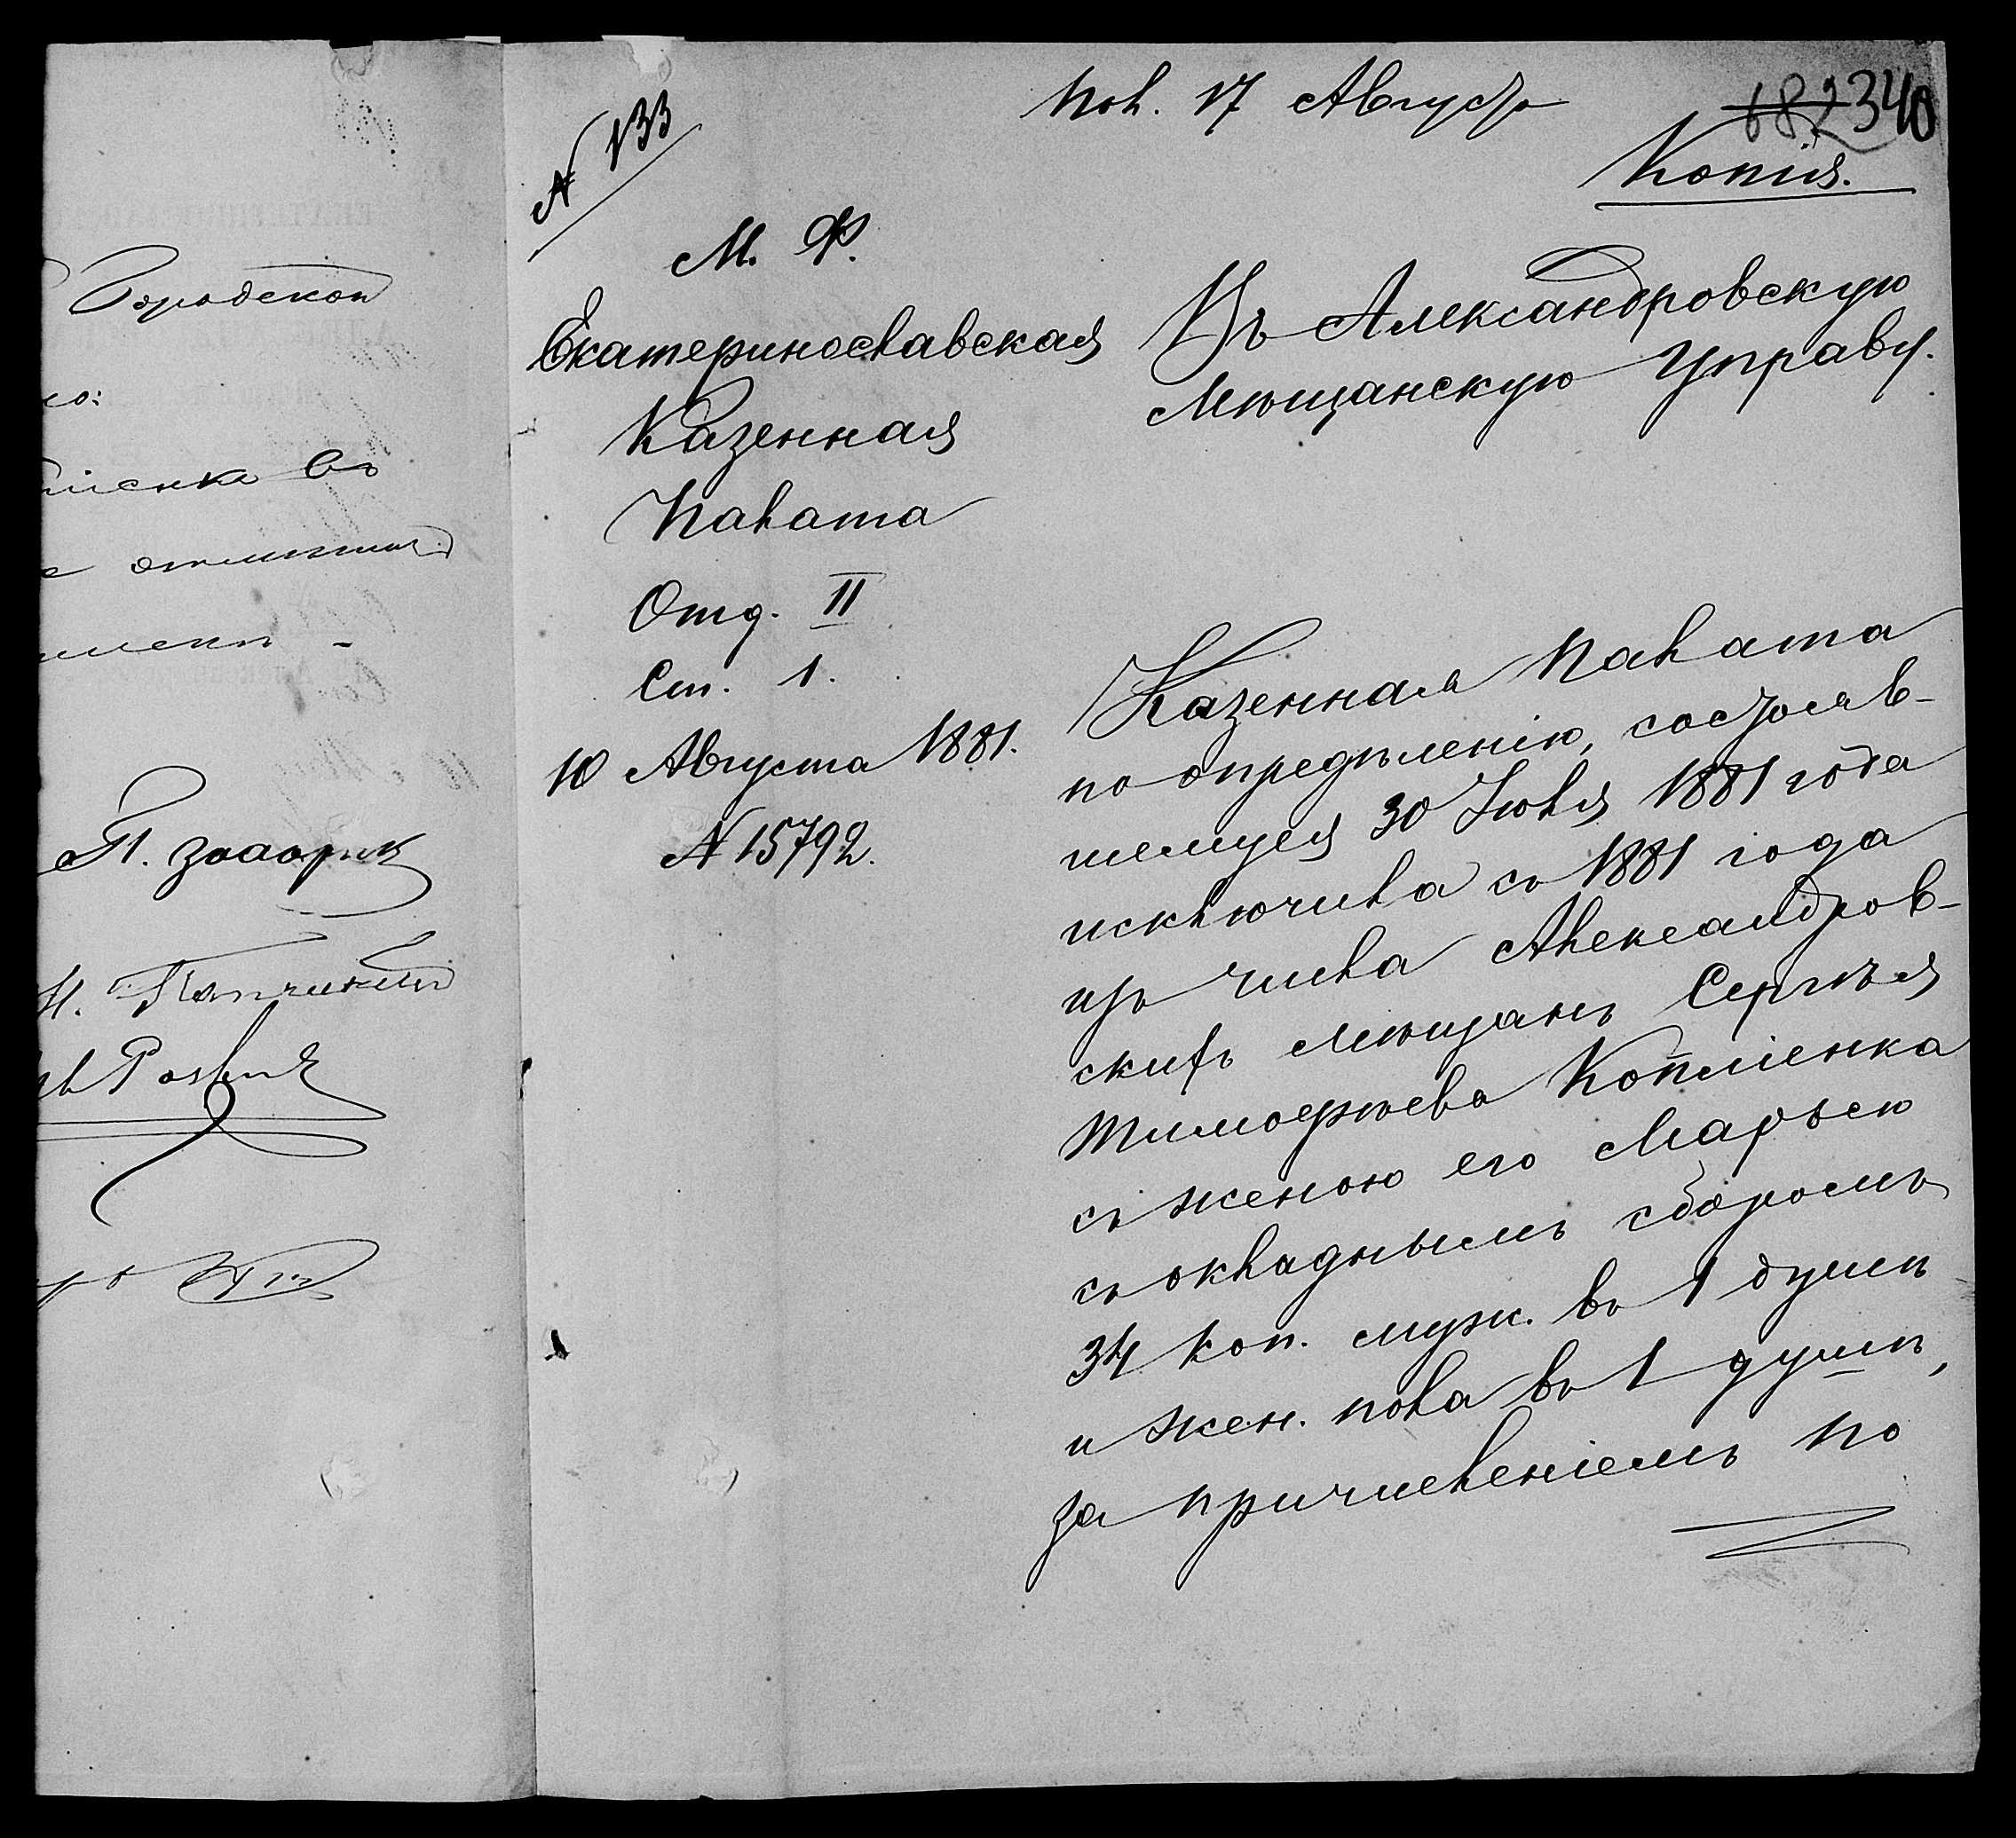 Городской
ло:
въ
№ 133
Пол. 17 Августа
682 340
Копія.
М. Ф.
Екатеринославская
Казенная
Палата
Отд. II
Ст. 1.
10 Августа 1881.
№ 15792.
Въ Александровскую
Мѣщанскую Управу.
Казенная Палата
по опредѣленію, состояв-
шемуся 30 Іюля 1881 года
исключила съ 1881 года
изъ числа Александров-
скихъ мѣщанъ Сергѣя
Тимофѣева Коптіенка
съ женою его Марьею
съ окладнымъ сборомъ
34 коп. муж. въ 1 душѣ
и жен. пола въ 1 душѣ,
за причисленіемъ по